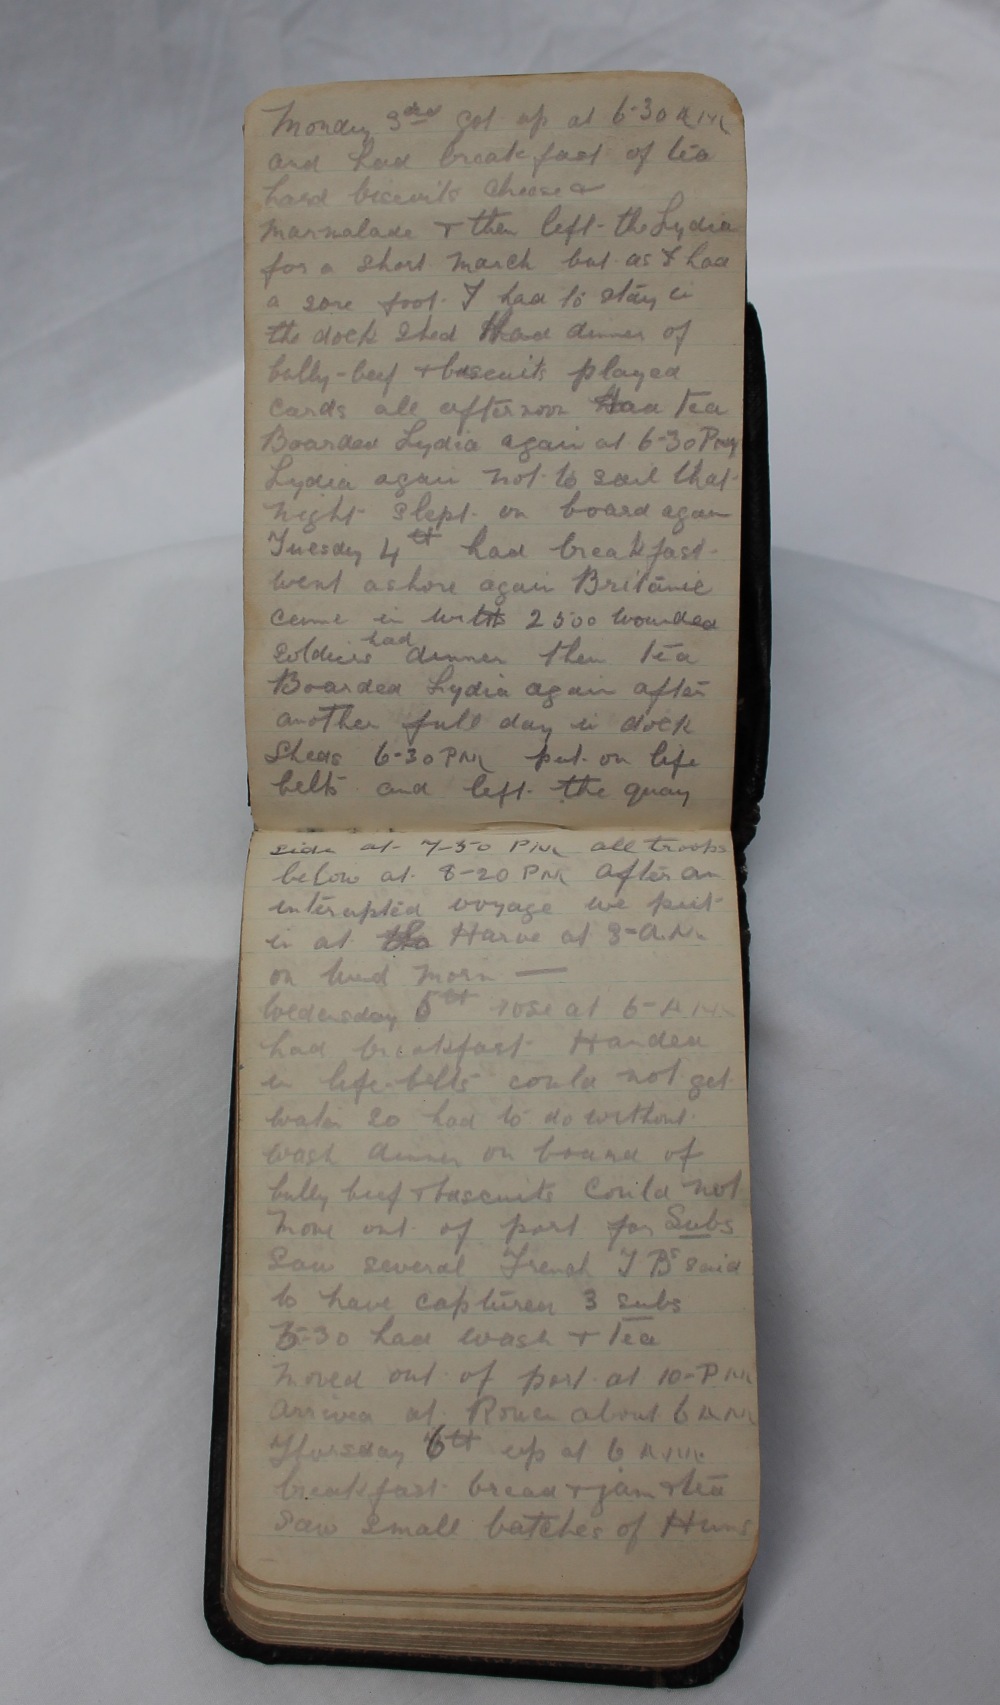 Monday 3rd got up at 6-30 A.M.
and had breakfast of tea
hard biscuits cheese &
marmalade & then left the Lydia
for a short march but as I had
a sore foot I had to stay in
the dock shed Had dinner of
bully-beef & biscuits played
cards all afternoon Had Tea
Boarded Lydia again at 6-30 PM
Lydia again not to sail that
night slept on board again
Tuesday 4th had breakfast
went ashore again Britanic
came in with 2500 wounded
soldiers had dinner then tea
Boarded Lydia again after
another full day in dock
sheds 6-30 PM put on life
belts and left the quay
side at 7-30 PM all troops
below at 8-20 PM after an
interupted voyage we put
in at the Harve at 3-A.M.
on Wed morn —
Wedensday 5th rose at 6-A.M.
had breakfast Handed
in life-belts could not get
water so had to do without
wash dinner on board of
bully beef & biscuits could not
move out of port for Subs
Saw several French T Bs said
to have captured 3 subs
5-30 had wash & Tea
Moved out of port at 10-PM
arrived at Rouen about 6 AM
Thursday 6th up at 6 A.M.
breakfast bread & jam & tea
Saw small batches of Huns